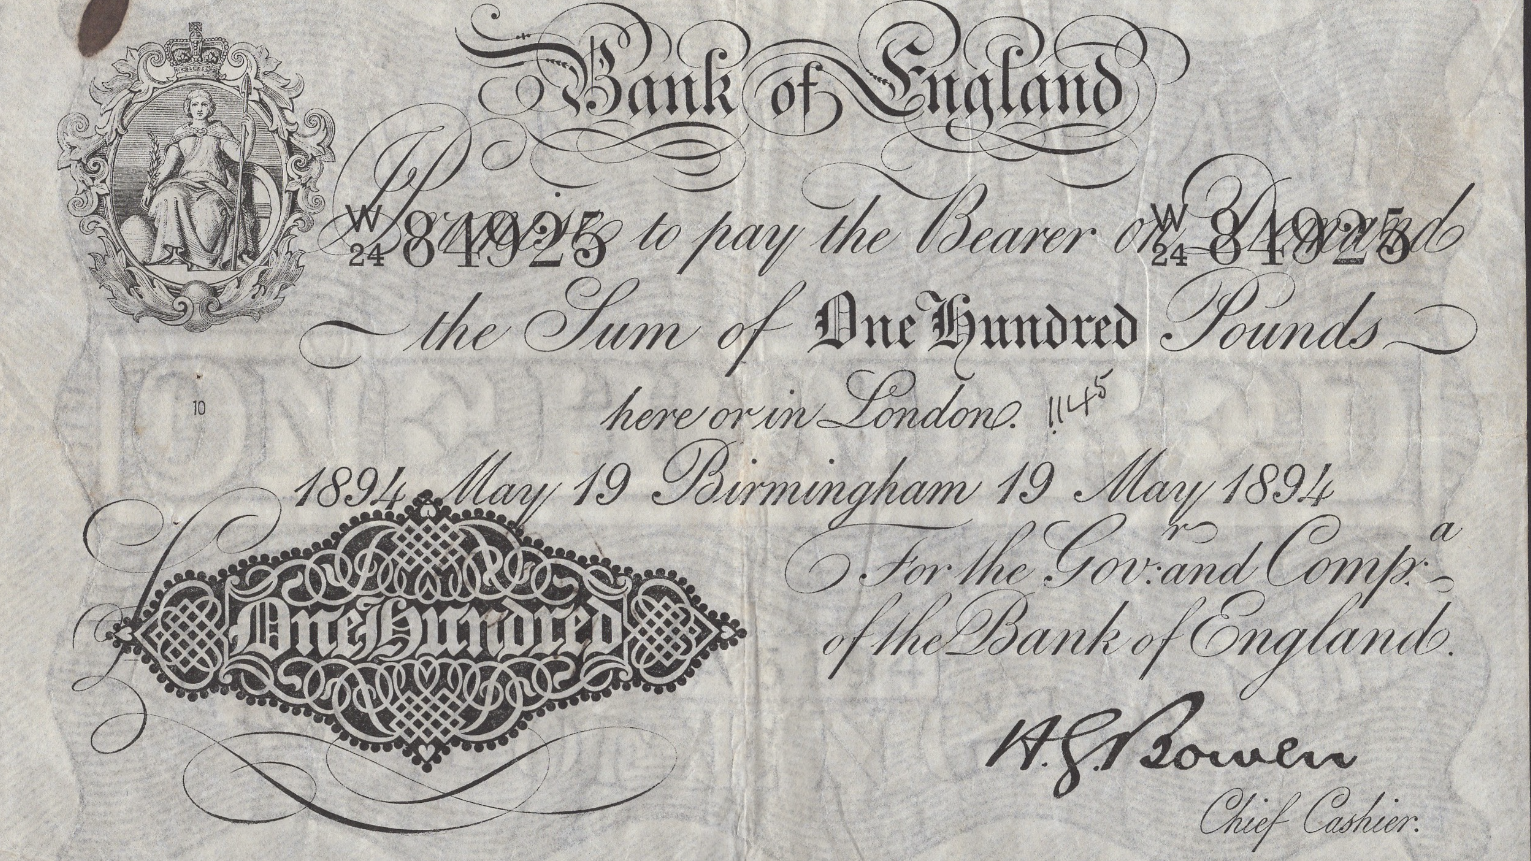 Bank of England
I Promise to pay the Bearer on Demand
W 24 84925 W 24 84925
the Sum of One Hundred Pounds
here or in London. 1145
10
1894 May 19 Birmingham 19 May 1894
For the Gov.r and Comp.a
of the Bank of England.
£ One Hundred
H.G. Bowen
Chief Cashier.